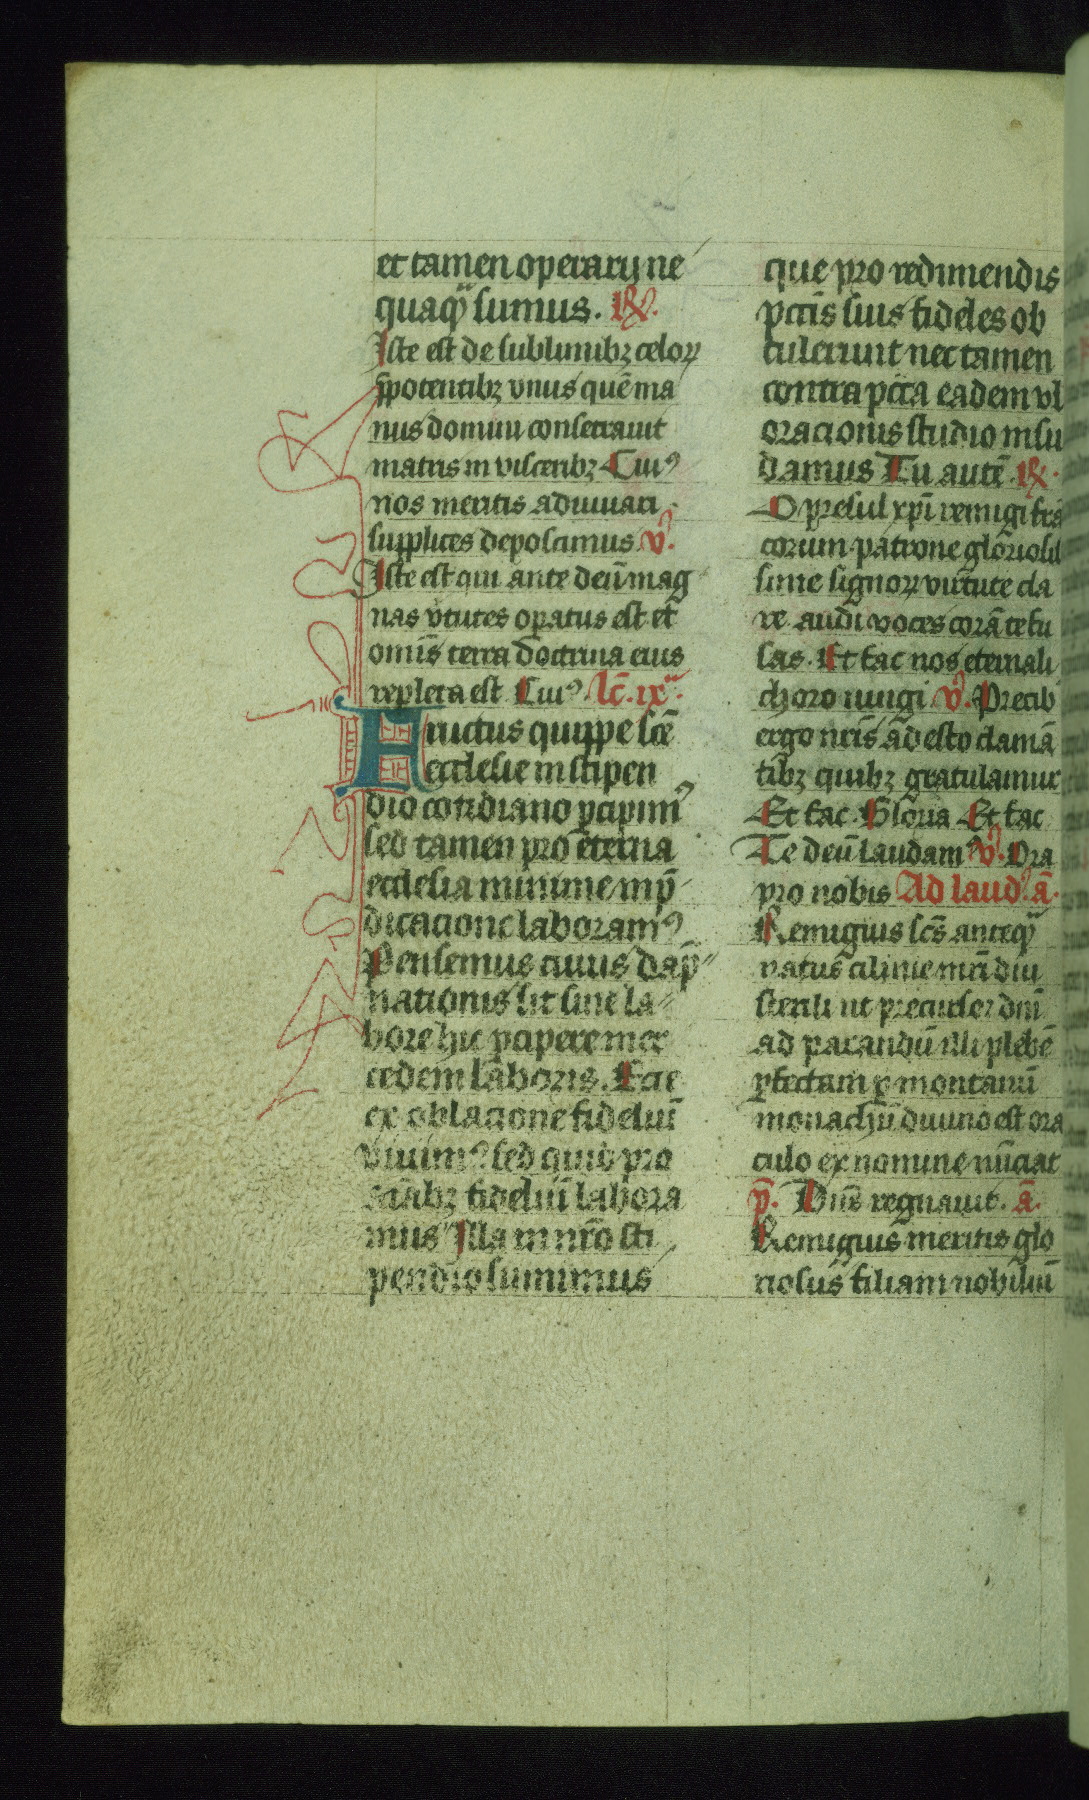 et tamen operarij ne
quaqȝ sumus. ℟.
Iste est de sublimibȝ celoꝝ
p̃potentibȝ vnus quẽ ma
nus domini consecrauit
matris in visceribȝ Cuiꝰ
nos meritis adiuuari
supplices deposcimus v̉.
Iste est qui ante deũ mag
nas v̉tutes oꝑatus est et
omĩs terra doctrina eius
repleta est Cuiꝰ lc̃. ixᵃ.
Fructus quippe scẽ
ecclesie in stipen
dio cotidiano ꝑcipimꝰ
sed tamen pro eterna
ecclesia minime in p̃
dicacione laboramꝰ
Pensemus cuius dãp
nationis sit sine la
bore hic ꝑcipere mer
cedem laboris. Ecce
ex oblacione fideliũ
viuimꝰ sed quid pro
aĩabȝ fideliũ labora
mus Illa in nr̃o sti
pendio sumimus
que pro redimendis
pctĩs suis fideles ob
tulerunt nec tamen
contra pctã eadem vl
oracionis studio insu
damus Tu autẽ ℟.
O presul xp̃i remigi frã
corum patrone gloriosis
sime signoꝝ virtute cla
re audi voces corã te fu
sas. Et fac nos eternali
choro iungi v̉. Precib
ergo nr̃is adesto clamã
tibȝ quibȝ gratulamur
Et fac. Gloria Et fac
Te deũ laudamꝰ v̉. Ora
pro nobis Ad laud̉ ã.
Remigius scũs anteqȝ
natus cilinie mr̃i diu
sterili ut precursor dnĩ
ad parandũ illi plebẽ
ꝑfectam ꝑ montanũ
monachũ diuino est ora
culo ex nomine nũciat
p̃. Dñs regnauit. ã.
Remigius meritis glo
riosus filiam nobiliũ